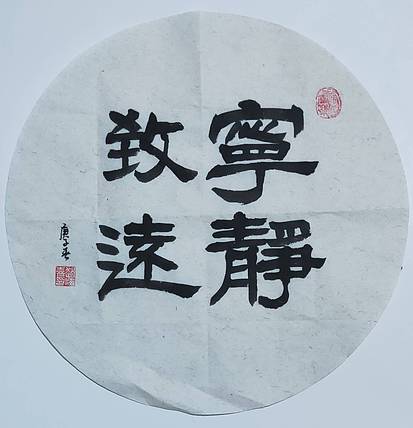 寧靜
致遠
庚子春